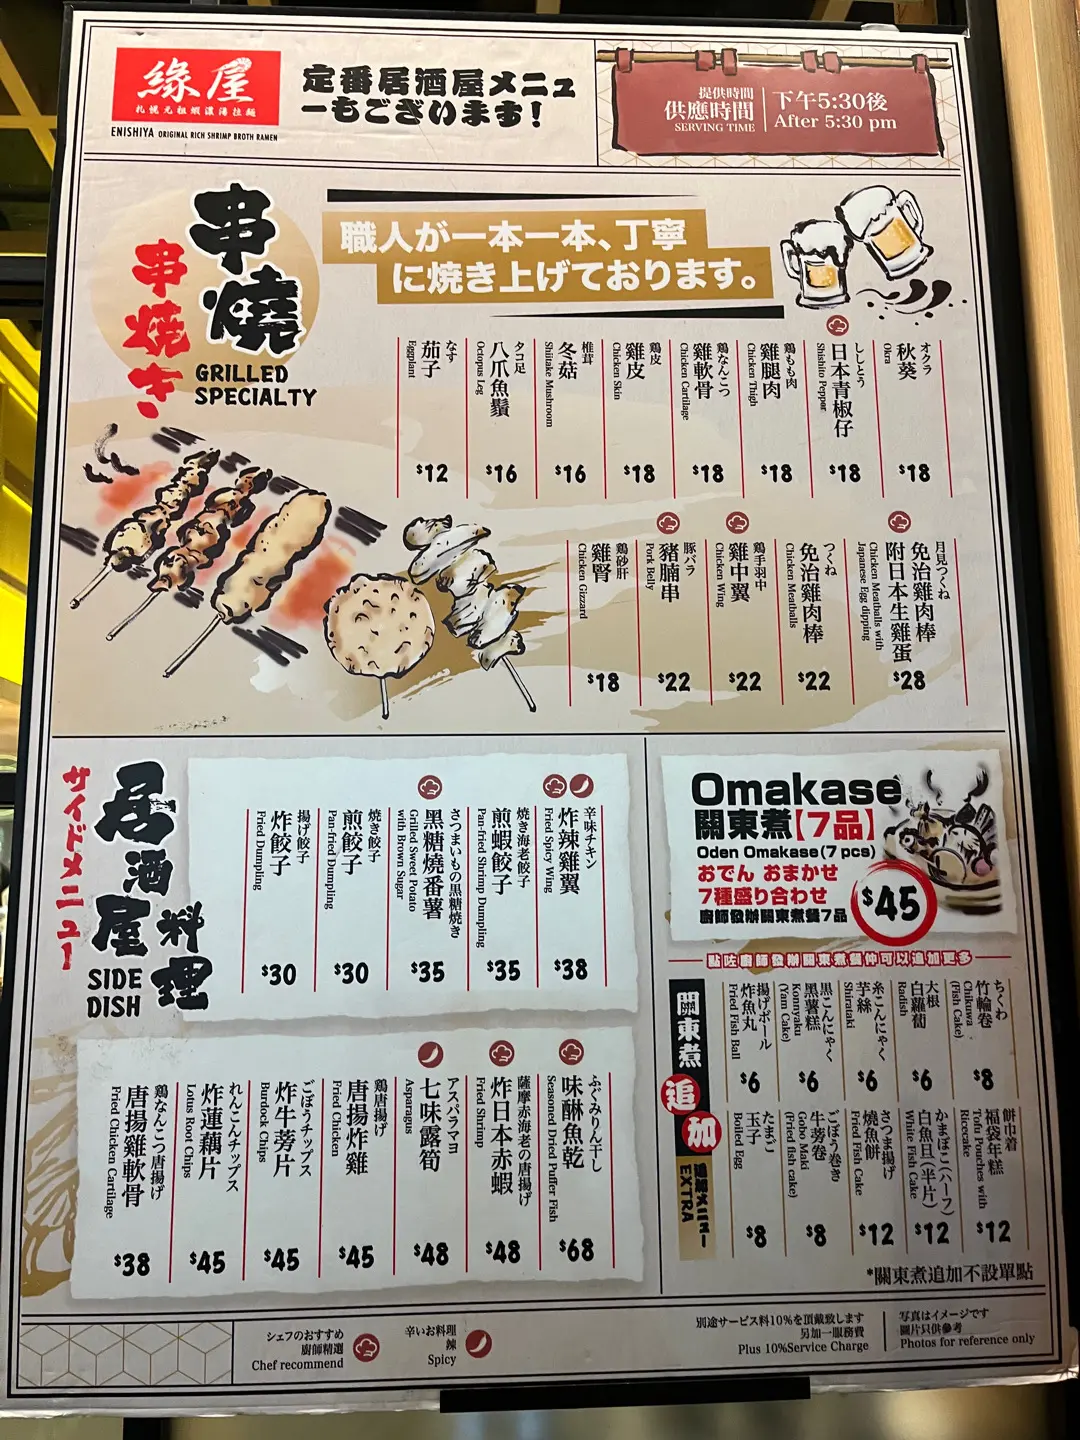 緣屋
札幌元祖蝦濃湯拉麵
ENISHIYA ORIGINAL RICH SHRIMP BROTH RAMEN
定番居酒屋メニュ
ーもございます!
提供時間
供應時間
SERVING TIME
下午5:30後
After 5:30 pm
串燒
串焼き
GRILLED
SPECIALTY
職人が一本一本、丁寧
に焼き上げております。
オクラ
秋葵
Okra
$18
ししとう
日本青椒仔
Shishito Pepper
$18
鶏もも肉
雞腿肉
Chicken Thigh
$18
鶏なんこつ
雞軟骨
Chicken Cartilage
$18
鶏皮
雞皮
Chicken Skin
$18
椎茸
冬菇
Shiitake Mushroom
$16
タコ足
八爪魚鬚
Octopus Leg
$16
なす
茄子
Eggplant
$12
月見つくね
免治雞肉棒
附日本生雞蛋
Chicken Meatballs with
Japanese Egg dipping
$28
つくね
免治雞肉棒
Chicken Meatballs
$22
鶏手羽中
雞中翼
Chicken Wing
$22
豚バラ
豬腩串
Pork Belly
$22
鶏砂肝
雞腎
Chicken Gizzard
$18
居酒屋料理
サイドメニュー
SIDE
DISH
辛味チキン
炸辣雞翼
Fried Spicy Wing
$38
焼き海老餃子
煎蝦餃子
Pan-fried Shrimp Dumpling
$35
さつまいもの黒糖焼き
黑糖燒番薯
Grilled Sweet Potato
with Brown Sugar
$35
焼き餃子
煎餃子
Pan-fried Dumpling
$30
揚げ餃子
炸餃子
Fried Dumpling
$30
ふぐみりん干し
味醂魚乾
Seasoned Dried Puffer Fish
$68
薩摩赤海老の唐揚げ
炸日本赤蝦
Fried Shrimp
$48
アスパラマヨ
七味露筍
Asparagus
$48
鶏唐揚げ
唐揚炸雞
Fried Chicken
$45
ごぼうチップス
炸牛蒡片
Burdock Chips
$45
れんこんチップス
炸蓮藕片
Lotus Root Chips
$45
鶏なんこつ唐揚げ
唐揚雞軟骨
Fried Chicken Cartilage
$38
Omakase
關東煮【7品】
Oden Omakase (7 pcs)
おでん おまかせ
7種盛り合わせ
廚師發辦關東煮餐7品
$45
點咗廚師發辦關東煮餐仲可以追加更多
關東煮
追加
追加メニュー
EXTRA
ちくわ
竹輪卷
Chikuwa
(Fish Cake)
$8
大根
白蘿蔔
Radish
$6
糸こんにゃく
芋絲
Shirataki
$6
黒こんにゃく
黑薯糕
Konnyaku
(Yam Cake)
$6
揚げボール
炸魚丸
Fried Fish Ball
$6
餅巾着
福袋年糕
Tofu Pouches with
Ricecake
$12
かまぼこ(ハーフ)
白魚旦(半片)
White Fish Cake
$12
さつま揚げ
燒魚餅
Fried Fish Cake
$12
ごぼう巻き
牛蒡卷
Gobo Maki
(Fried fish cake)
$8
たまご
玉子
Boiled Egg
$8
*關東煮追加不設單點
シェフのおすすめ
廚師精選
Chef recommend
辛いお料理
辣
Spicy
別途サービス料10%を頂戴致します
另加一服務費
Plus 10%Service Charge
写真はイメージです
圖片只供參考
Photos for reference only